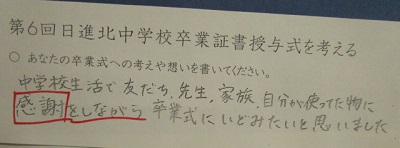 第6回日進北中学校卒業証書授与式を考える
○ あなたの卒業式への考えや想いを書いてください。
中学校生活で友だち、先生、家族、自分が使ってた物に
感謝をしながら卒業式にいどみたいと思いました